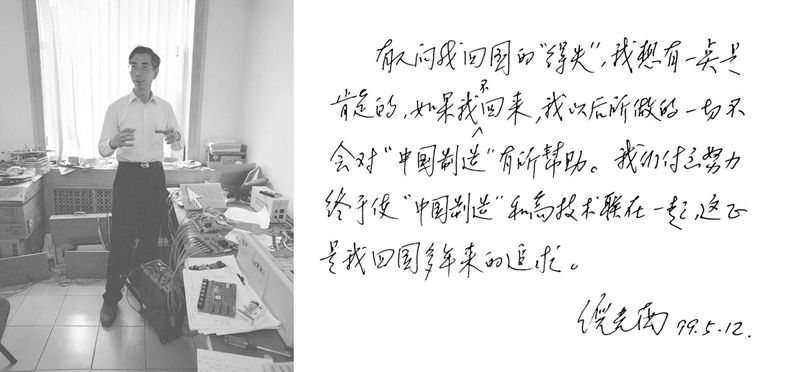 有人问我回国的“得失”，我想有一点是
肯定的，如果我不回来，我以后所做的一切不
会对“中国制造”有所帮助。我们付之努力
终于使“中国制造”和高技术联在一起，这正
是我回国多年来的追求。
倪光南 99.5.12.